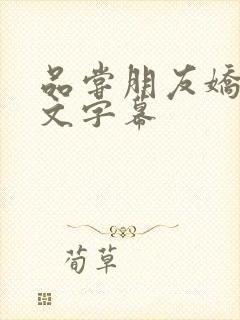 品尝朋友嬌
文字幕
荀草